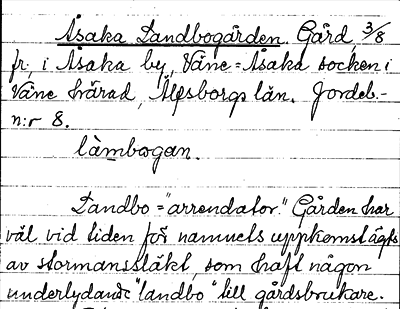 Åsaka Landbogården. Gård, 3/8
fr, i Åsaka by, Väne-Åsaka socken i
Väne härad, Älfsborgs län. Jordeb.-
n:r 8.
làmbogan.
Landbo = "arrendator." Gården har
väl vid tiden för namnets uppkomst ägts
av stormanssläkt, som haft någon
underlydande "landbo" till gårdsbrukare.